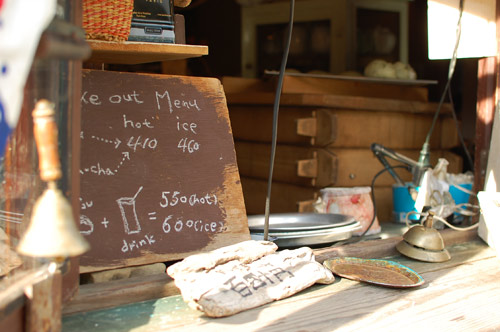 ke out Menu
hot ice
410 460
-cha
= 550 (hot)
+ 600 (ice)
drink